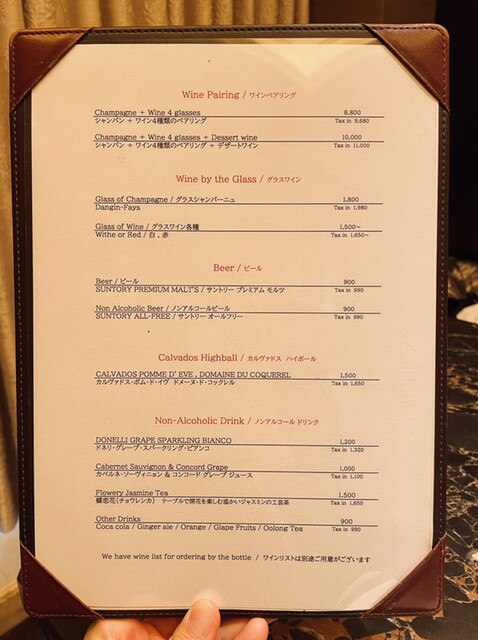 Wine Pairing / ワインペアリング
Champagne + Wine 4 glasses 8,800
シャンパン + ワイン4種類のペアリング Tax in 9,680
Champagne + Wine 4 glasses + Dessert wine 10,000
シャンパン + ワイン4種類のペアリング + デザートワイン Tax in 11,000
Wine by the Glass / グラスワイン
Glass of Champagne / グラスシャンパーニュ 1,800
Dangin-Fays Tax in 1,980
Glass of Wine / グラスワイン各種 1,500~
Withe or Red / 白 , 赤 Tax in 1,650~
Beer / ビール
Beer / ビール 900
SUNTORY PREMIUM MALT'S / サントリー プレミアム モルツ Tax in 990
Non Alcoholic Beer / ノンアルコールビール 900
SUNTORY ALL-FREE / サントリー オールフリー Tax in 990
Calvados Highball / カルヴァドス ハイボール
CALVADOS POMME D' EVE , DOMAINE DU COQUEREL 1,500
カルヴァドス・ポム・ド・イヴ ドメーヌ・ド・コックレル Tax in 1,650
Non-Alcoholic Drink / ノンアルコールドリンク
DONELLI GRAPE SPARKLING BIANCO 1,200
ドネリ・グレープ・スパークリング・ビアンコ Tax in 1,320
Cabernet Sauvignon & Concord Grape 1,000
カベルネ・ソーヴィニョン & コンコード グレープ ジュース Tax in 1,100
Flowery Jasmine Tea 1,500
蝶恋花(チョウレンカ) テーブルで開花を楽しむ温かいジャスミンの工芸茶 Tax in 1,650
Other Drinks 900
Coca cola / Ginger ale / Orange / Glape Fruits / Oolong Tea Tax in 990
We have wine list for ordering by the bottle / ワインリストは別途ご用意がございます